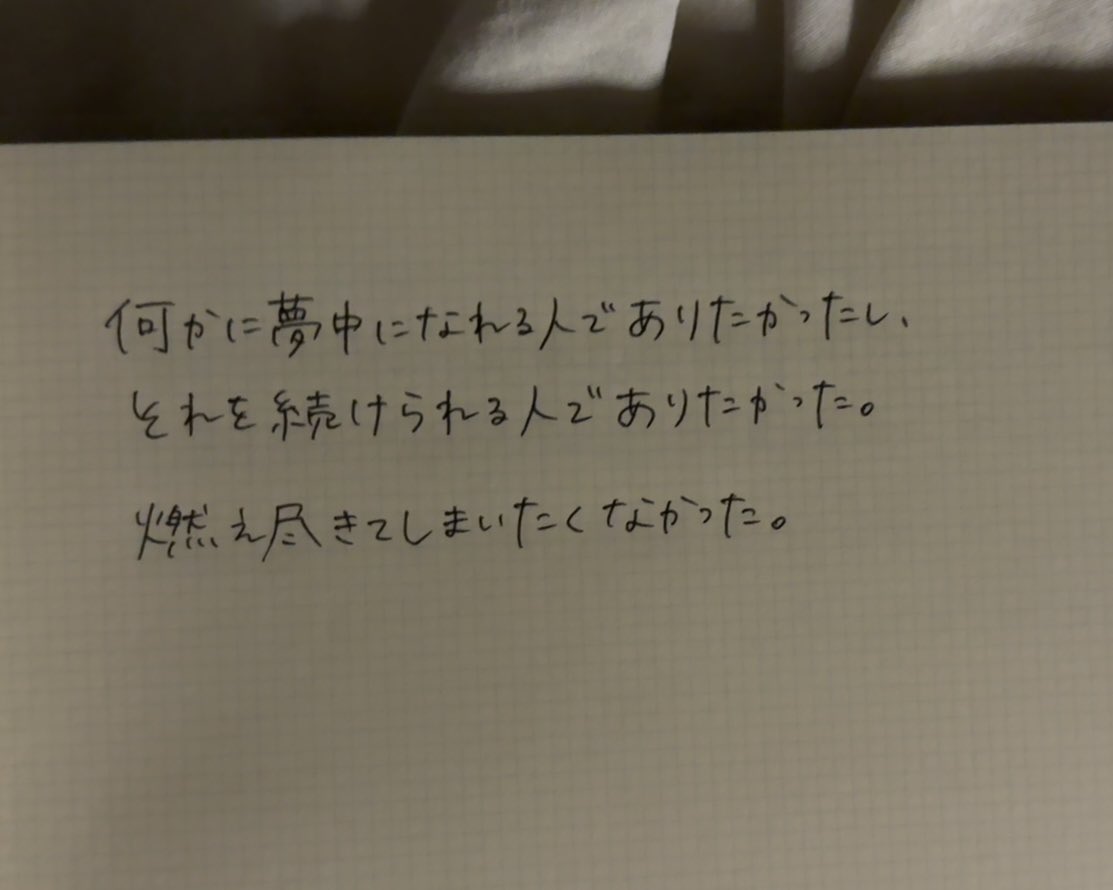 何かに夢中になれる人でありたかったし、
それを続けられる人でありたかった。
燃え尽きてしまいたくなかった。